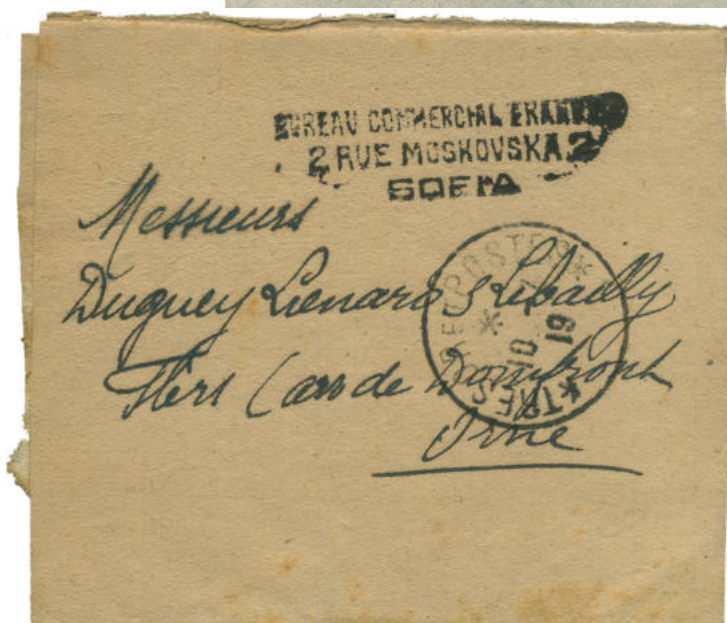 BUREAU COMMERCIAL FRANC
2 RUE MOSKOVSKA 2
SOFIA
Messieurs
Duguey Lienard & Lebailly
Flers (arr de Domfront
Orne
TRESOR ET POSTES
10
19